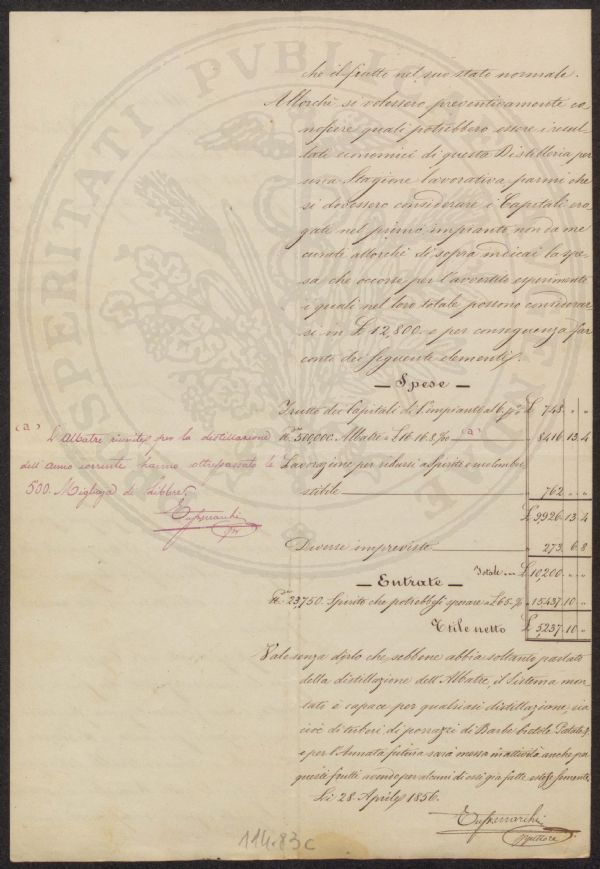 che il frutto nel suo stato normale.
Allorchè si volessero preventivamente co
noscere quali potrebbero essere i resul
tati economici di questa Distilleria per
una Stagione lavorativa, parmi che
si dovessero considerare i Capitali ero
gati nel primo impianto, non da me
curati allorchè di sopra indicai la spe
sa che occorse per l'avvertito esperimento
i quali nel loro totale possono considerar
si in £ 12,800. e per conseguenza far
conto dei seguenti elementi.
— Spese —
Frutto dei Capitali di l'impianto al 6. p% £ 748. " "
500,000. Albatre a £ 16.8 %0 (a) " 8416.13.4
Lavorazione per ridursi a Spirito e combu
stibile " 762. " "
£ 9926.13.4
Diverse impreviste " 273. 6.8
Totale £ 10,200. " "
— Entrate —
23,750. Spirito che potrebbesi sperare a £ 65. % " 15437.10 "
Utile netto £ 5237.10 "
(a) L'Albatre riunite per la distillazione
dell'anno corrente hanno oltrepassato le
500. Migliaja di Libbre.
Vale senza dirlo che sebbene abbia soltanto parlato
della distillazione dell'Albatre, il Sistema mon
tato è capace per qualsiasi distillazione, sia
cioè di tuberi di porrazzi di Barbe bietole Patate &
e per l'Annata futura sarà messo in attività anche per
questi frutti avendo per alcuni di essi già fatte estese semente.
Li 28 Aprile 1856.
114.83c
PVBLICAE
SPERITATI